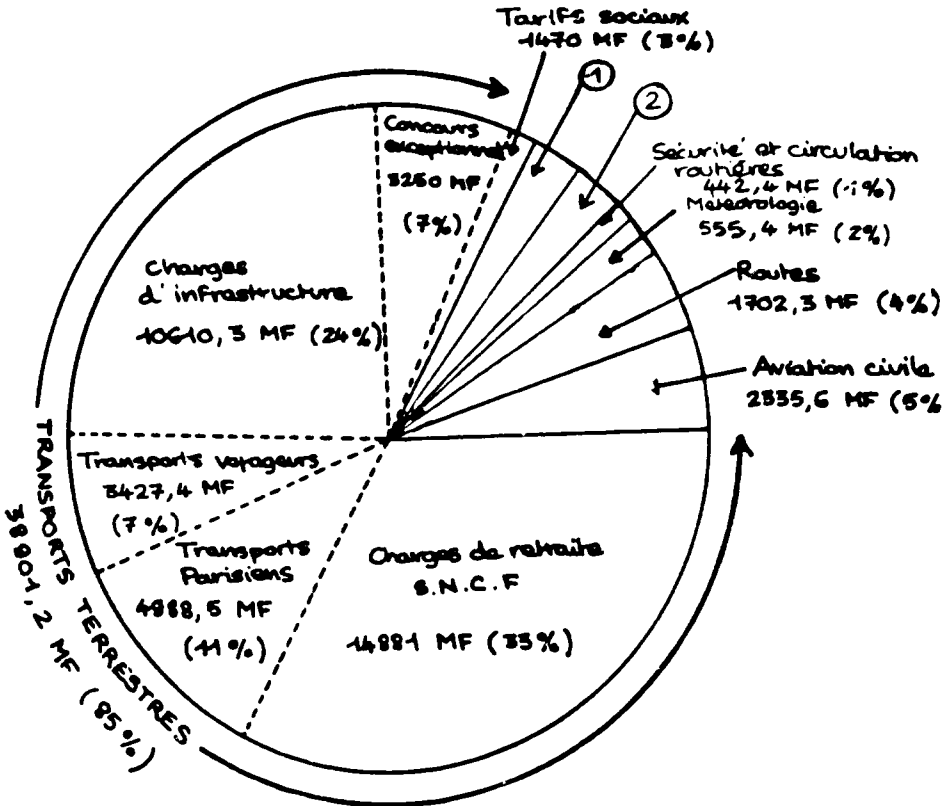 Tarifs sociaux
1470 MF (3%)
1
2
Concours
exceptionnel
3250 MF
(7%)
Sécurité et circulation
routières
442,4 MF (1%)
Météorologie
555,4 MF (2%)
Routes
1702,3 MF (4%)
Aviation civile
2335,6 MF (5%
Charges
d'infrastructure
10610,3 MF (24%)
Transports voyageurs
3427,4 MF
(7%)
Transports
Parisiens
4888,5 MF
(11%)
Charges de retraite
S.N.C.F
14881 MF (33%)
TRANSPORTS TERRESTRES
38901,2 MF (85%)